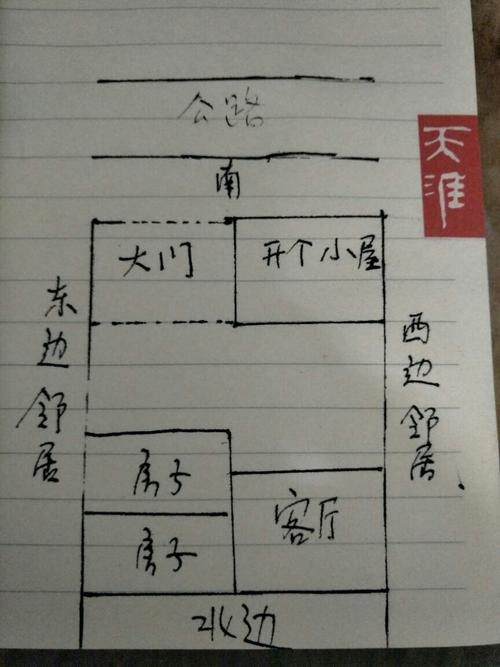 公路
南
大门
开个小屋
天涯
东边邻居
西边邻居
房子
房子
客厅
北边